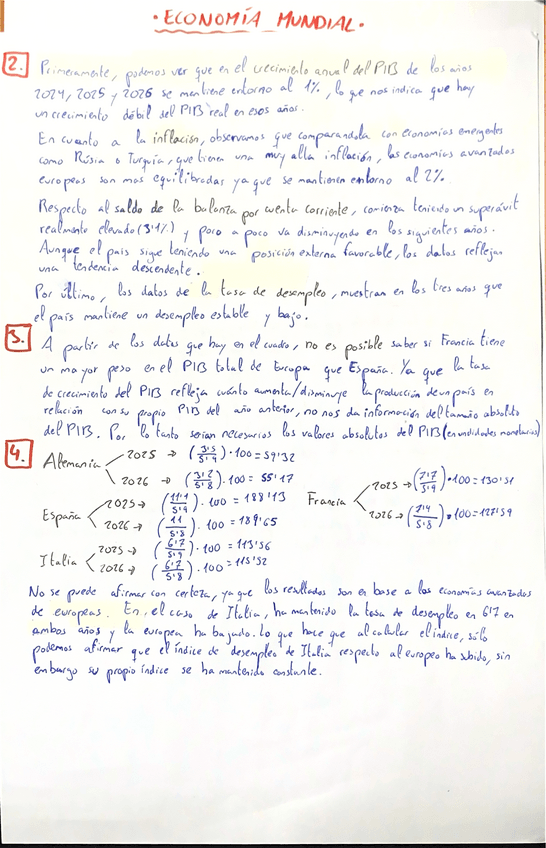 · ECONOMÍA MUNDIAL ·
2. Primeramente, podemos ver que en el crecimiento anual del PIB de los años
2024, 2025 y 2026 se mantiene entorno al 1%, lo que nos indica que hay
un crecimiento débil del PIB real en esos años.
En cuanto a la inflación, observamos que comparandola con economías emergentes
como Rusia o Turquía, que tienen una muy alta inflación, las economías avanzadas
europeas son mas equilibradas ya que se mantienen entorno al 2%.
Respecto al saldo de la balanza por cuenta corriente, comienza teniendo un superávit
realmente elevado (3'1%) y poco a poco va disminuyendo en los siguientes años.
Aunque el país sigue teniendo una posición externa favorable, los datos reflejan
una tendencia descendente.
Por último, los datos de la tasa de desempleo, muestran en los tres años que
el país mantiene un desempleo estable y bajo.
3. A partir de los datos que hay en el cuadro, no es posible saber si Francia tiene
un mayor peso en el PIB total de Europa que España. Ya que la tasa
de crecimiento del PIB refleja cuánto aumenta/disminuye la producción de un país en
relación con su propio PIB del año anterior, no nos da información del tamaño absoluto
del PIB. Por lo tanto serían necesarios los valores absolutos del PIB (en unidades monetarias)
4. Alemania 2025 → (3'5/5'9) · 100 = 59'32
2026 → (3'2/5'8) · 100 = 55'17
España 2025 → (11'1/5'9) · 100 = 188'13
2026 → (11/5'8) · 100 = 189'65
Italia 2025 → (6'7/5'9) · 100 = 113'56
2026 → (6'7/5'8) · 100 = 115'52
Francia 2025 → (7'7/5'9) · 100 = 130'51
2026 → (7'4/5'8) · 100 = 127'59
No se puede afirmar con certeza, ya que los resultados son en base a las economías avanzadas
de europeas. En el caso de Italia, ha mantenido la tasa de desempleo en 6'7 en
ambos años y la europea ha bajado. Lo que hace que al calcular el índice, sólo
podemos afirmar que el índice de desempleo de Italia respecto al europeo ha subido, sin
embargo su propio índice se ha mantenido constante.